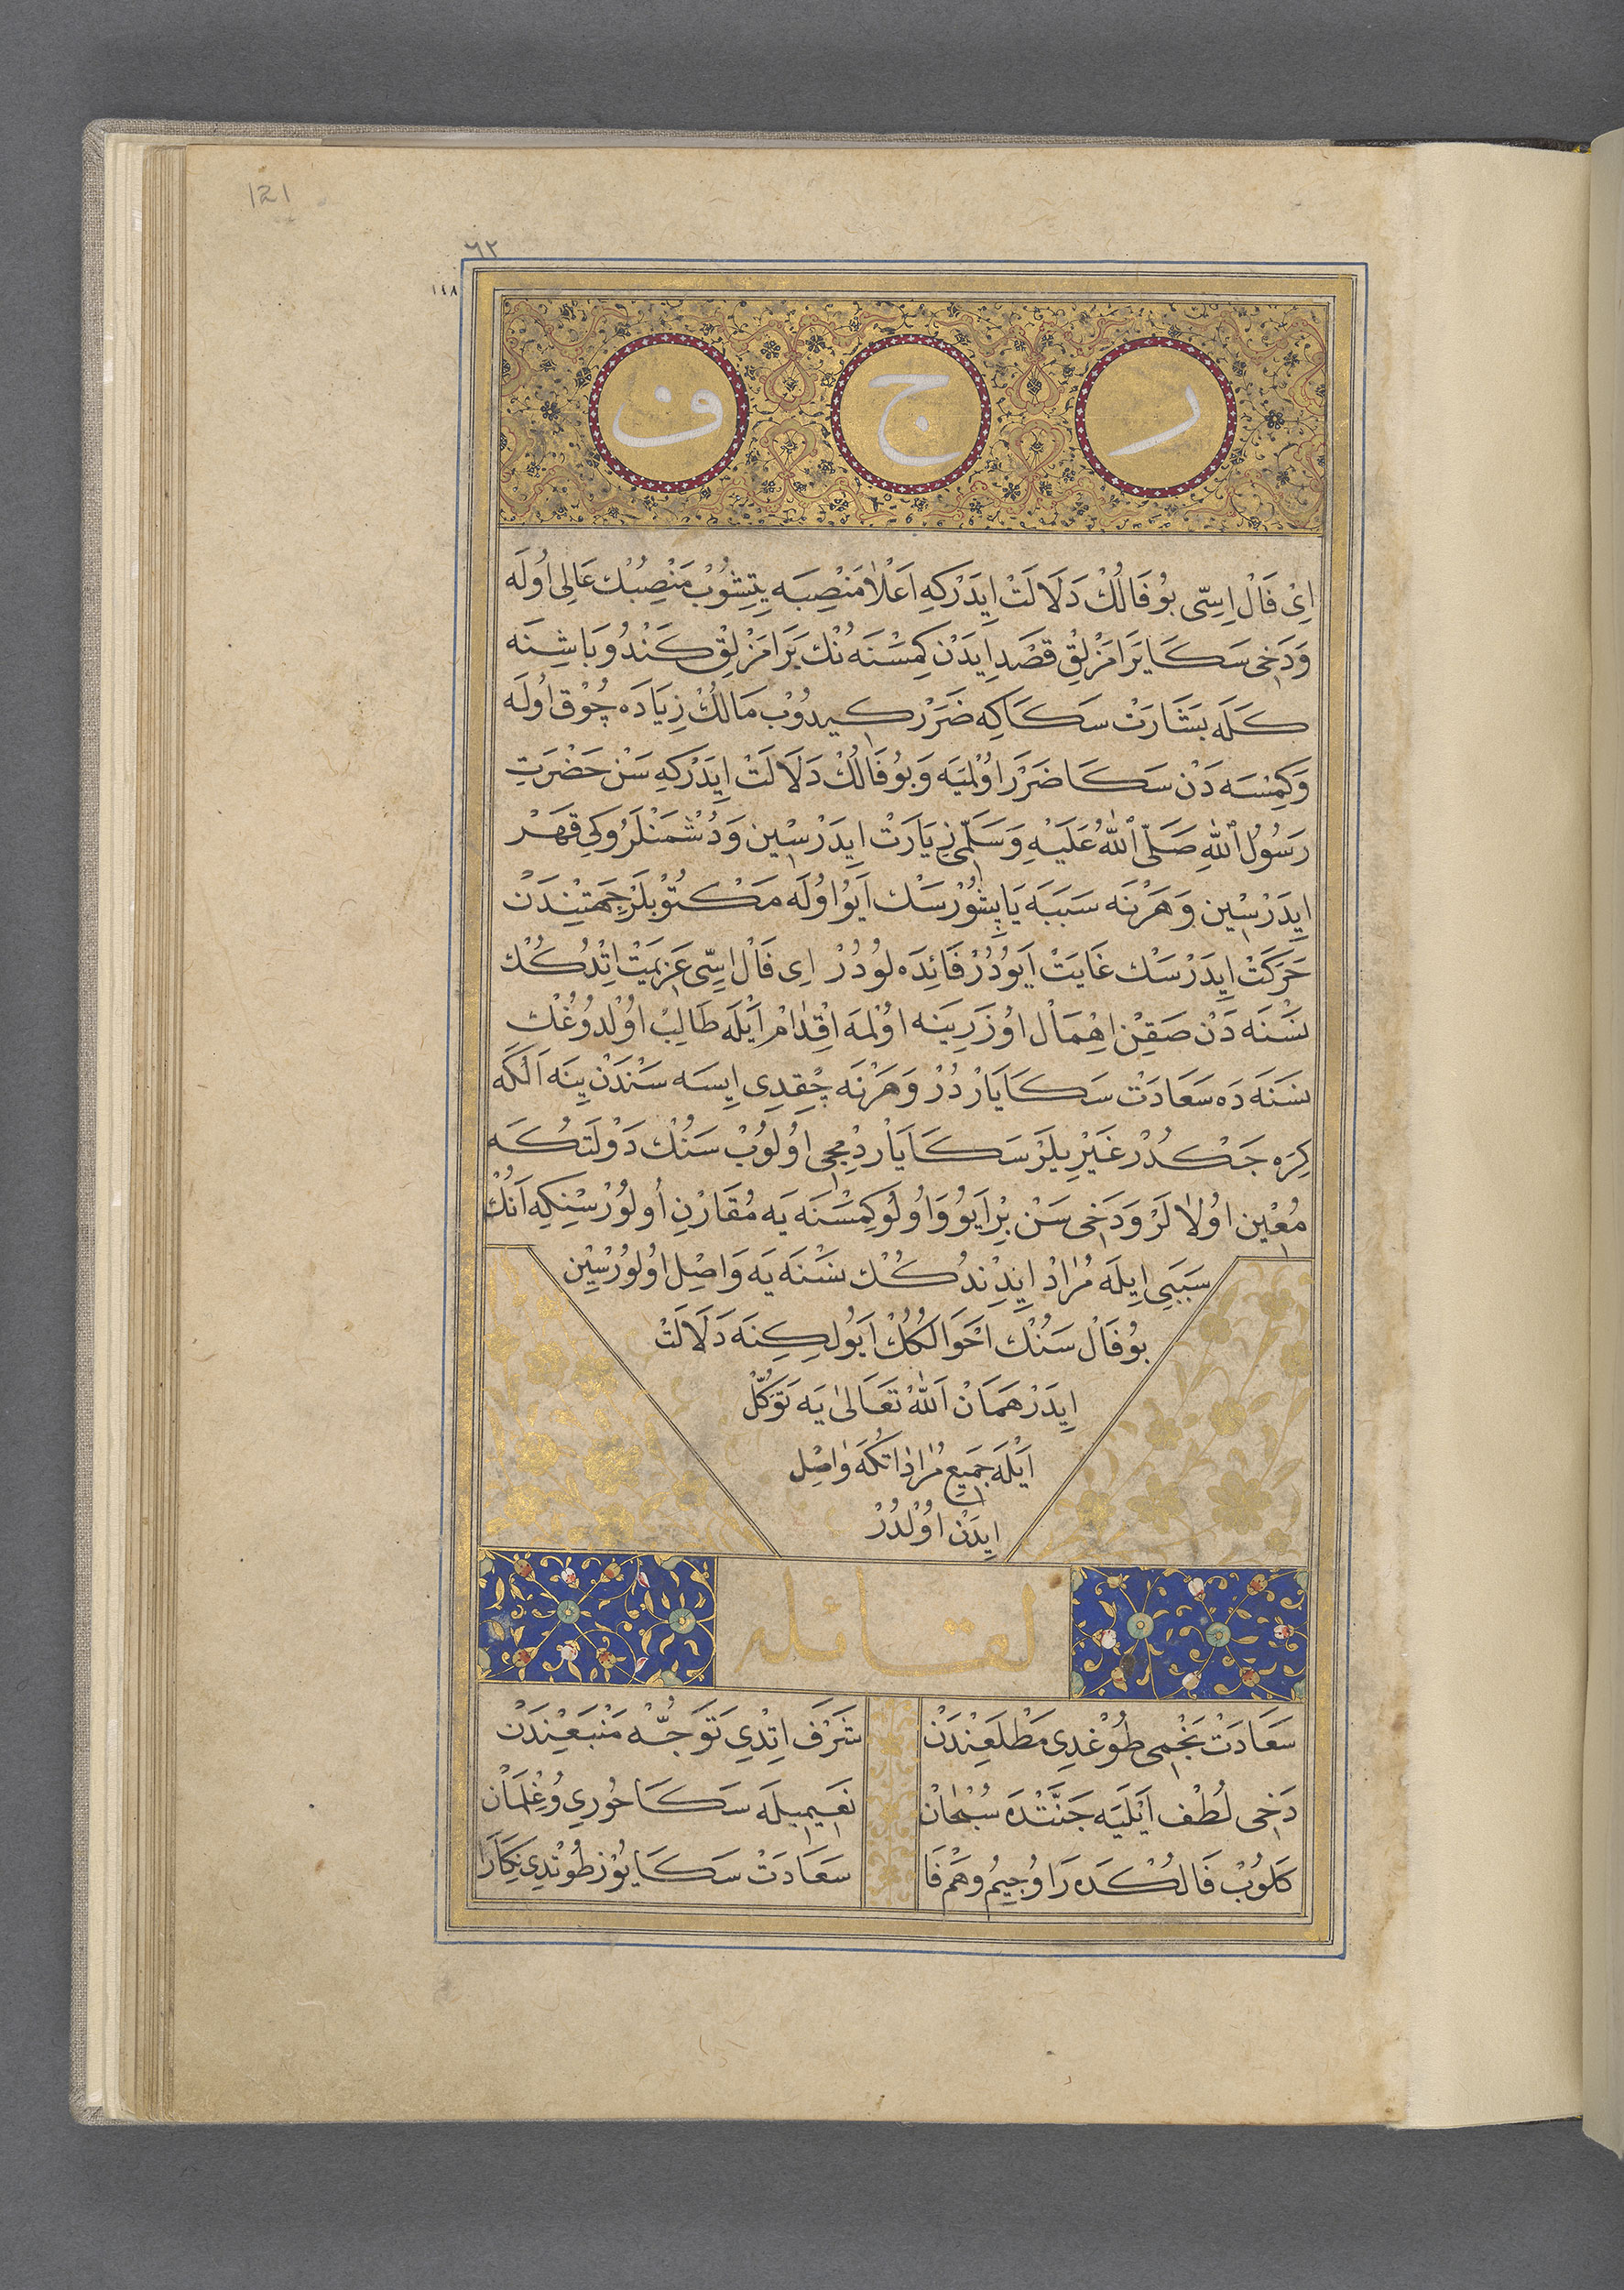 121
٦٢
١٤٨
ر ج ف
اِیْ فَالْ اِسِّی بُو فَالُكْ دَلَالَتْ اِیَدَرْكِه اَعْلَا مَنْصِبَه یِتِشُوبْ مَنْصِبُكْ عَالِی اُولَه
وَدَخِی سَكَا یَرَامَزْلِقْ قَصْدِ اِیدَنْ كِمْسَنَه نُنْكْ یَرَامَزْلِقْ كَنْدُو بَاشِنَه
كَلَه بَشَارَتْ سَكَا كِه ضَرَرْ كِیدُوبْ مَالُكْ زِیَادَه چُوْقْ اُولَه
وَكِمْسَه دَنْ سَكَا ضَرَرْ اُوْلمَیَه وَبُو فَالُكْ دَلَالَتْ اِیَدَرْكِه سَنْ حَضْرَتِ
رَسُولُ ٱللّٰهِ صَلَّی ٱللّٰهُ عَلَیْهِ وَسَلَّمِی زِیَارَتْ اِیدَرْسِین وَدُشْمَنْلَرُوكِی قَهَرْ
اِیدَرْسِین وَهَرْنَه سَبَبَه یَاپِشُوْرْسَكْ اَیُو اُولَه مَكْتُوْبلَرْ جَهَتِنْدَنْ
حَرَكَتْ اِیدَرْسَكْ غَایَتْ اَیُودُرْ فَائِدَه لُودُرْ اِی فَالْ اِسِّی عَزِیمَتْ اِتْدُكُكْ
نَسْنَه دَنْ صَقِنْ اِهْمَالْ اوُزَرِینَه اوُلْمَه اِقْدَامْ اَیْلَه طَالِبْ اوُلْدوُغُكْ
نَسْنَه دَه سَعَادَتْ سَكَا یَارْدُرْ وَهَرْنَه چِقْدِی اِیسَه سَنْدَنْ یِنَه اَلْكَه
كِرَه جَكْدُرْ غَیْرِیلَرْ سَكَا یَارْدِمْجِی اوُلُوبْ سَنُكْ دَوْلَتُكَه
مُعِیْن اوُلَالَرْ وَدَخِی سَنْ بِرْ اَیُو وَاوُلُو كِمْسَنَه یَه مُقَارْنِ اُولوُرْسِنْكِه اَنُكْ
سَبَبِی اِیلَه مُرَادْ اِیدِنْدُكُكْ نَسْنَه یَه وَاصِلْ اوُلوُرْسِیْن
بُو فَالْ سَنُكْ اَحْوَالُكُكْ اَیُولِكِنَه دَلَالَتْ
اِیدَرْ هَمَانْ اَللّٰهْ تَعَالٰی یَه تَوَكُّلْ
اَیْلَه جَمِیعِ مُرَادَاتُكَه وَاصِلْ
اِیدَنْ اوُلْدُرْ
لقائله
سَعَادَتْ نَجْمِی طُوْغْدِی مَطْلَعِنْدَنْ شَرَفْ اِتْدِی تَوَجُّهْ مَنْبَعِنْدَنْ
دَخِی لُطْف اَیْلَیَه جَنَّتْدَه سُبْحَانْ نَعِیمِیلَه سَكَا حُورِی وُغِلْمَانْ
كَلُوبْ فَالُكْدَه رَا وُجِیمُ وهَمْ فَا سَعَادَتْ سَكَا یُوْز طُوْتْدِی نِكَارَا